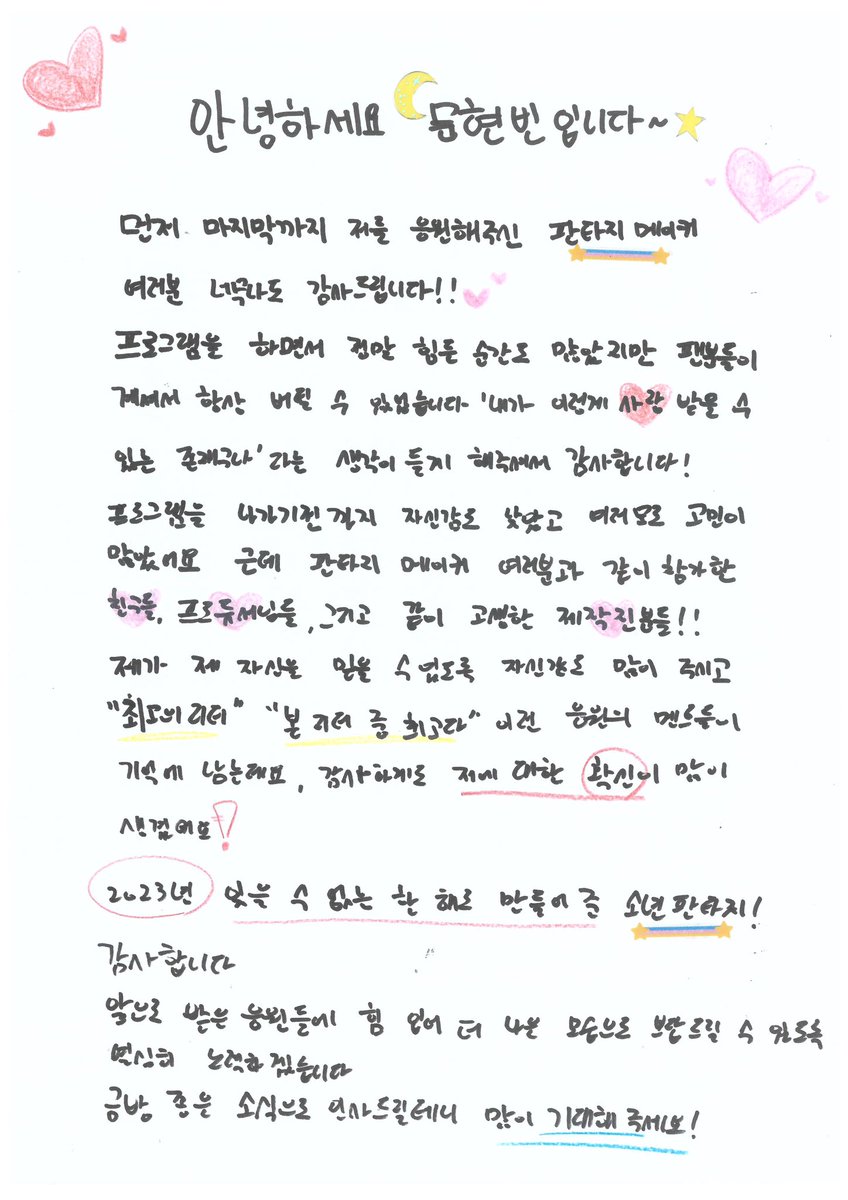 안녕하세요 문현빈입니다~
먼저 마지막까지 저를 응원해주신 판타지 메이커
여러분 너무나도 감사드립니다!!
프로그램을 하면서 정말 힘든 순간도 많았지만 팬분들이
계셔서 항상 버틸 수 있었습니다. '내가 이렇게 사랑 받을 수
있는 존재구나' 라는 생각이 들게 해주셔서 감사합니다!
프로그램을 나가기전까지 자신감도 낮았고 여러모로 고민이
많았어요 근데 판타지 메이커 여러분과 같이 참가한
친구들, 프로듀서님들, 그리고 같이 고생한 제작진분들!!
제가 제 자신을 믿을 수 있도록 자신감도 많이 주시고
"최고의 리더" "본 리더 중 최고다" 이런 응원의 멘트들이
기억에 남는데요, 감사하게도 저에 대한 확신이 많이
생겼어요!
2023년 잊을 수 없는 한 해로 만들어 준 소년판타지!
감사합니다
앞으로 받은 응원들에 힘 입어 더 나은 모습으로 보답드릴 수 있도록
열심히 노력하겠습니다
금방 좋은 소식으로 인사드릴테니 많이 기대해 주세요!